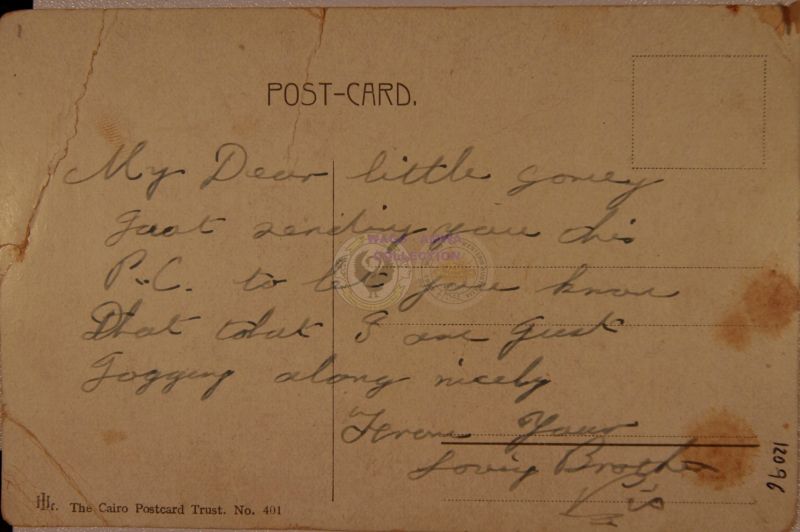 POST-CARD.
My Dear little
Just sending you this
P.C. to let you know
That that I am Just
Jogging along nicely
From Your
Loving Brother
COLLECTION
12096
The Cairo Postcard Trust. No. 401